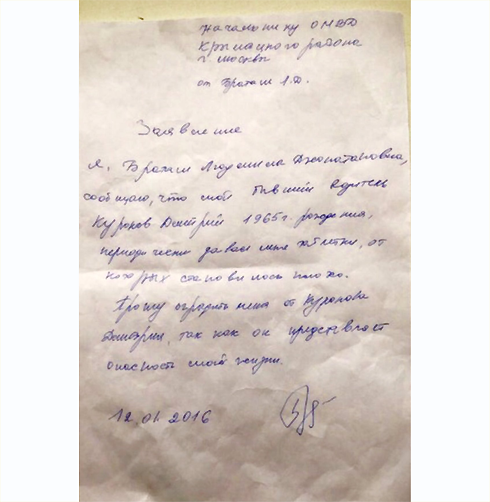 Начальнику ОМВД
Крылацкого района
г Москвы
от Браташ Л.Д.
Заявление
Я, Браташ Людмила Джонатановна,
сообщаю, что мой бывший водитель
Куронов Дмитрий 1965 г. рождения,
периодически давал мне таблетки, от
которых становилось плохо.
Прошу оградить меня от Куронова
Дмитрия, так как он представляет
опасность моей жизни.
12.01.2016